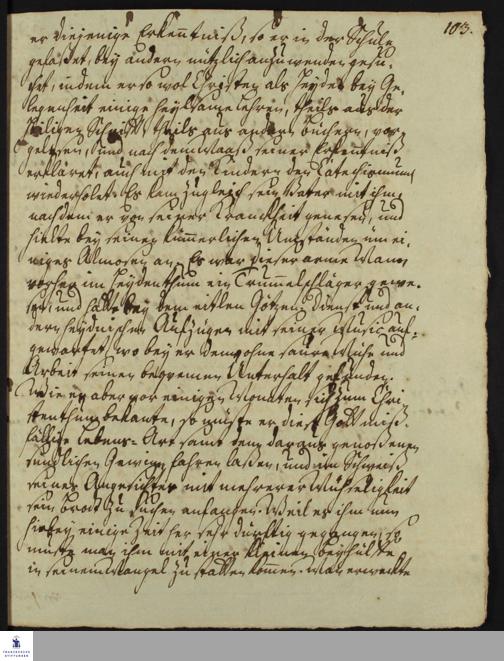 103.
er diejenige Erkenntniß, so er in der Schule
gefaßet, bey andern nützlich anzuwenden gesu-
chet, indem er so wol Christen als Heyden bey Ge-
legenheit einige heylsame Lehren, theils aus der
Heiligen Schrifft theils aus andern büchern, vor-
gelesen, und nach dem Maaß seiner Erkenntniß
erkläret, auch mit den Kindern den Catechismum
wiederholet. Es kam zugleich sein Vater mit ihm,
nachdem er von seiner Kranckheit genesen, und
hielte bey seinen kümmerlichen Umständen um ei-
niges Almosen an. Es war dieser arme Mann
vorher im Heydenthum ein Trummelschläger gewe-
sen, und hatte bey dem eitlen Götzen-Dienst und an-
dern heydnischen Aufzügen mit seiner Music auf-
gewartet, wo bey er denn ohne saure Mühe und
Arbeit seinen bequemen Unterhalt gefunden.
Wie er aber vor einigen Monaten sich zum Chri-
stenthum bekante, so müste er diese Gott miß-
fällige Lebens-Art samt dem daraus genoßenen
sündlichen Gewinn fahren laßen, und im Schweiß
seines Angesichtes mit mehrerer Mühseligkeit
sein brodt zu suchen anfangen. Weil es ihm nun
hiebey einige Zeit her sehr dürfftig gegangen, so
muste man ihm mit einer kleinen beyhülffe
in seinem Mangel zu statten kommen. Man erweckte
FRANCKESCHE
STIFTUNGEN